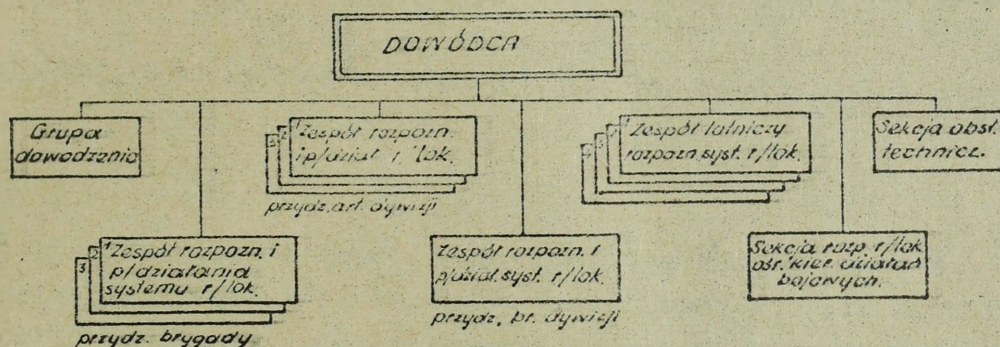 DOWÓDCA
Grupa
dowodzenia
3 2 1 Zespół rozpozn.
i p/dział. r/lok.
przydz. art. dywizji
4 3 2 1 Zespół lotniczy
rozpozn. syst. r/lok.
Sekcja obsł.
technicz.
3 2 1 Zespół rozpozn. i
p/działania
systemu r/lok.
przydz. brygady
Zespół rozpozn. i
p/dział. syst. r/lok.
przydz. br. dywizji
Sekcja rozp. r/lok
ośr. kier. działań
bojowych.